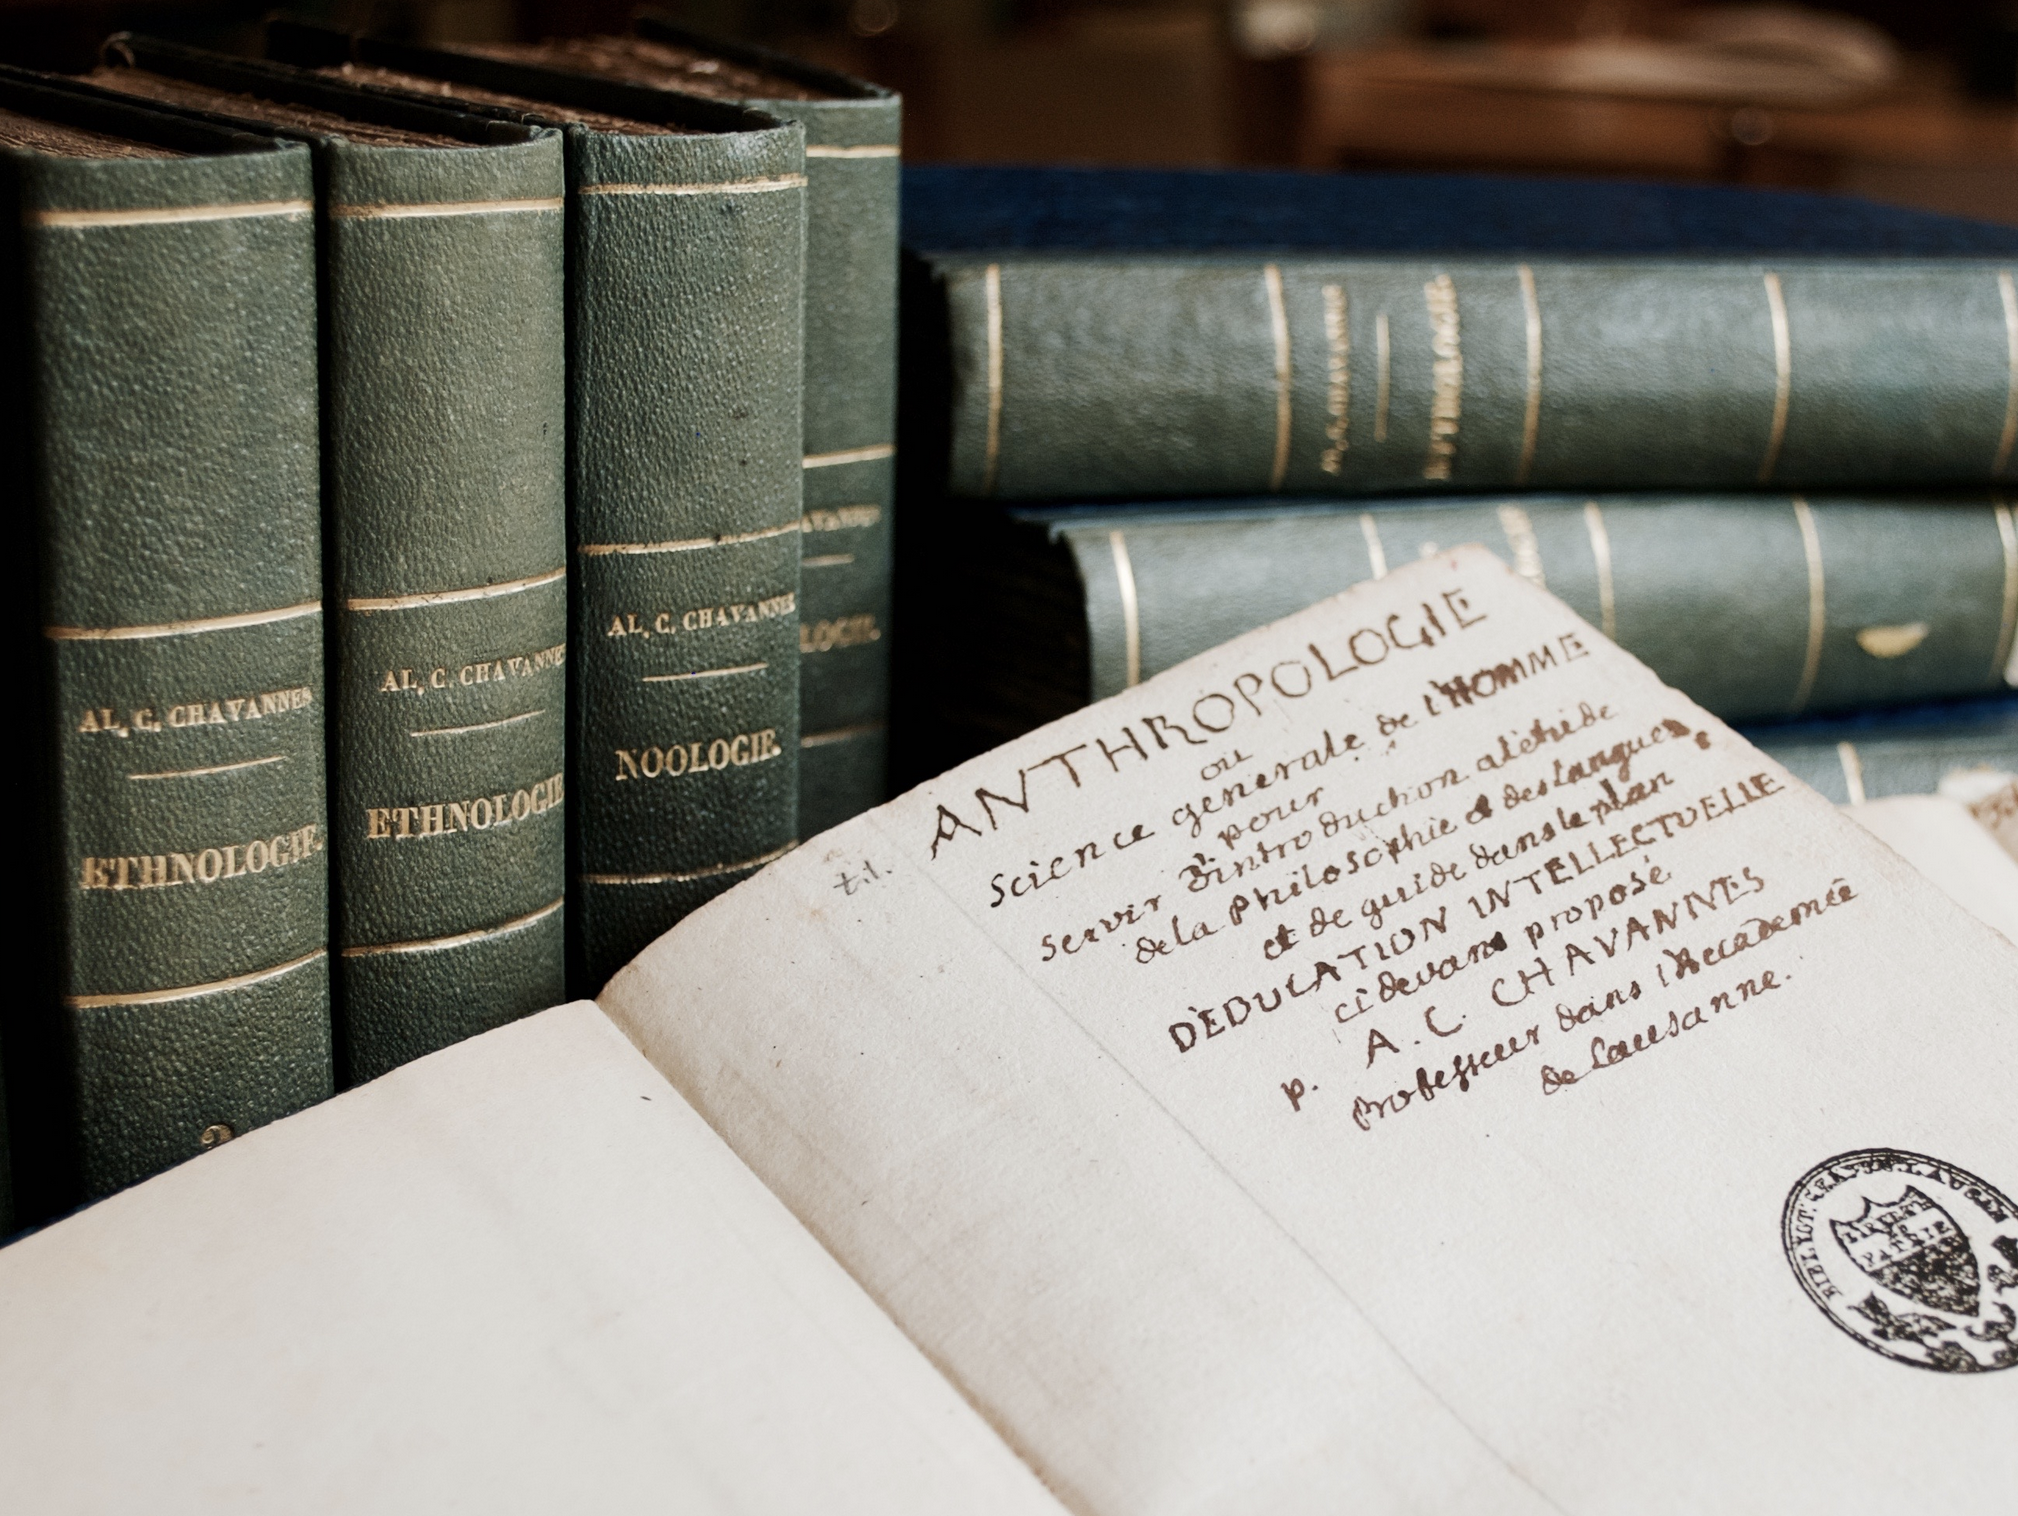 AL. C. CHAVANNES
ETHNOLOGIE.
2
AL. C. CHAVANNES
ETHNOLOGIE
AL. C. CHAVANNES
NOOLOGIE.
AVANNES
LOGIE.
ANTHROPOLOGIE
ou
science generale de l'HOMME
pour
servir d'introduction a l'étude
de la Philosophie et des Langues,
et de guide dans le plan
D'EDUCATION INTELLECTUELLE
ci devant proposé
p. A. C. CHAVANNES
Professeur dans l'Academie
de Lausanne.
BIBLIOT.
LIBERTÉ
ET
PATRIE